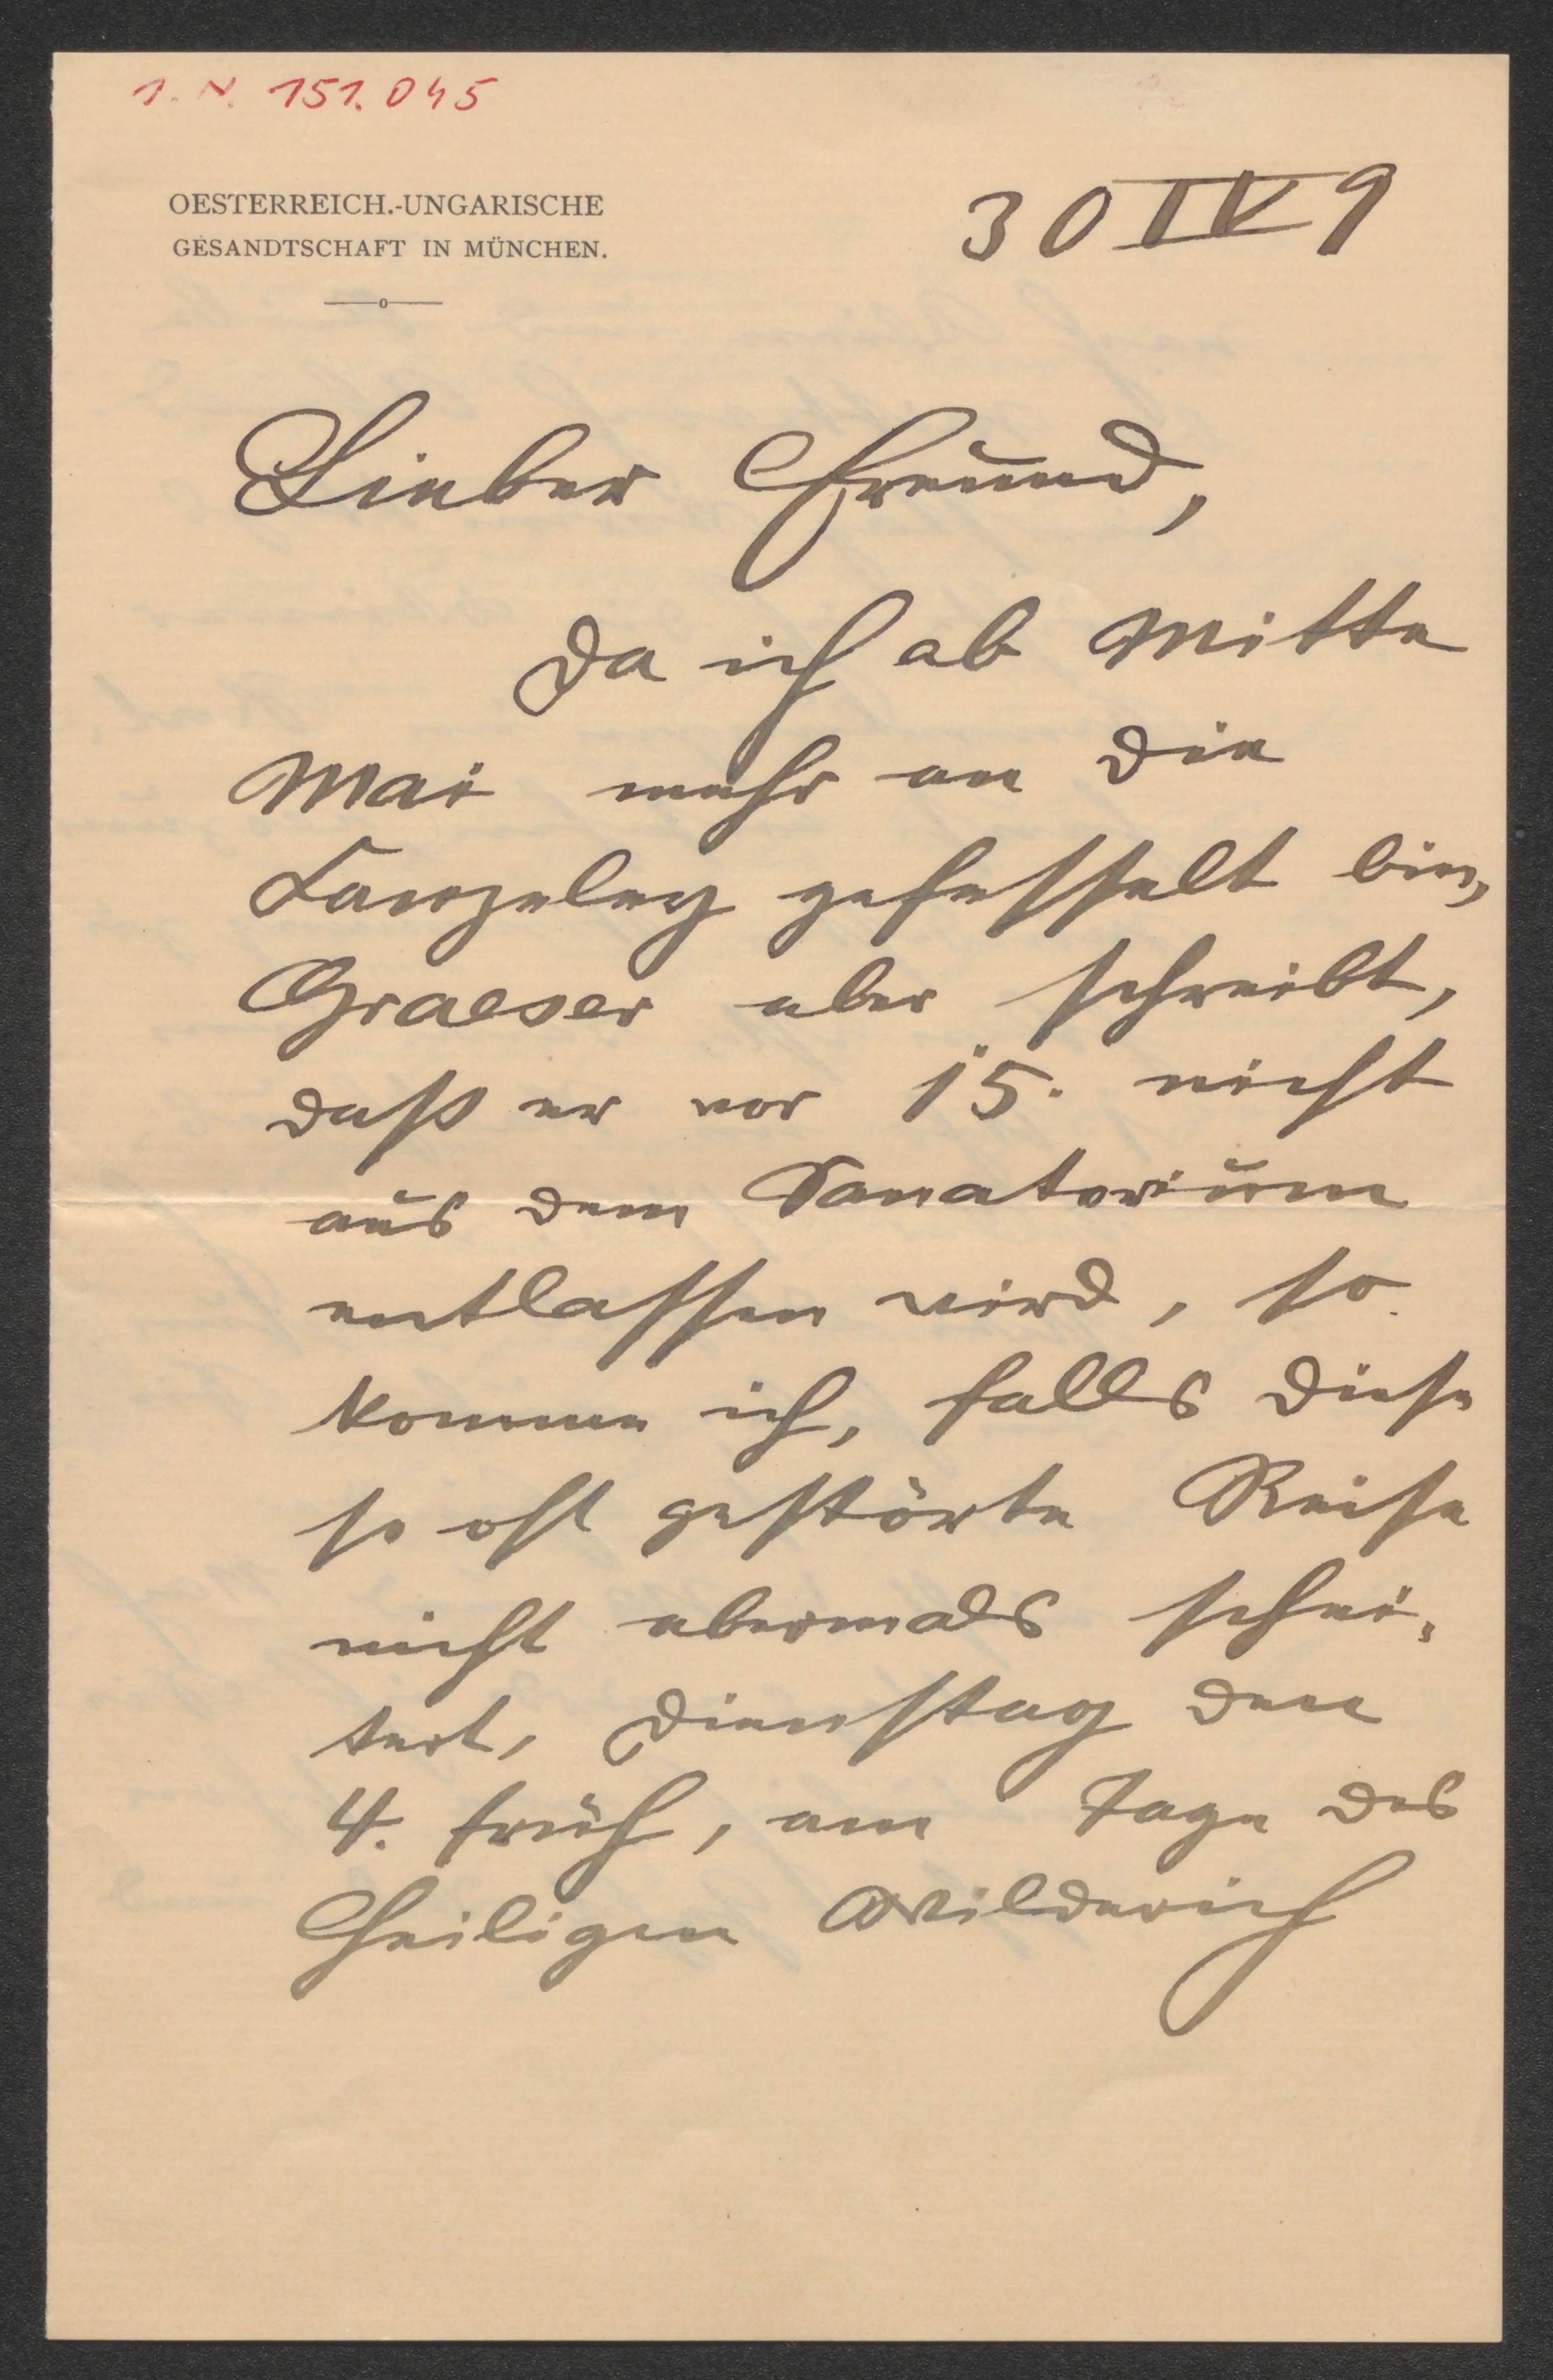 I. N. 151.045
OESTERREICH.-UNGARISCHE
GESANDTSCHAFT IN MÜNCHEN.
30 IV 9
Lieber Freund,
Da ich ab Mitte
Mai mehr an die
Kanzeley gefesselt bin,
Graeser aber schreibt,
daß er vor 15. nicht
aus dem Sanatorium
entlassen wird, so
komme ich, falls diese
so oft gestörte Reise
nicht abermals schei-
tert, Dienstag den
4. früh, am Tage des
Heiligen Wilderich